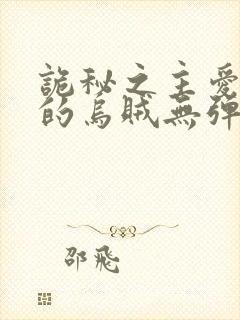 詭秘之主愛
的烏賊無彈
邵飛